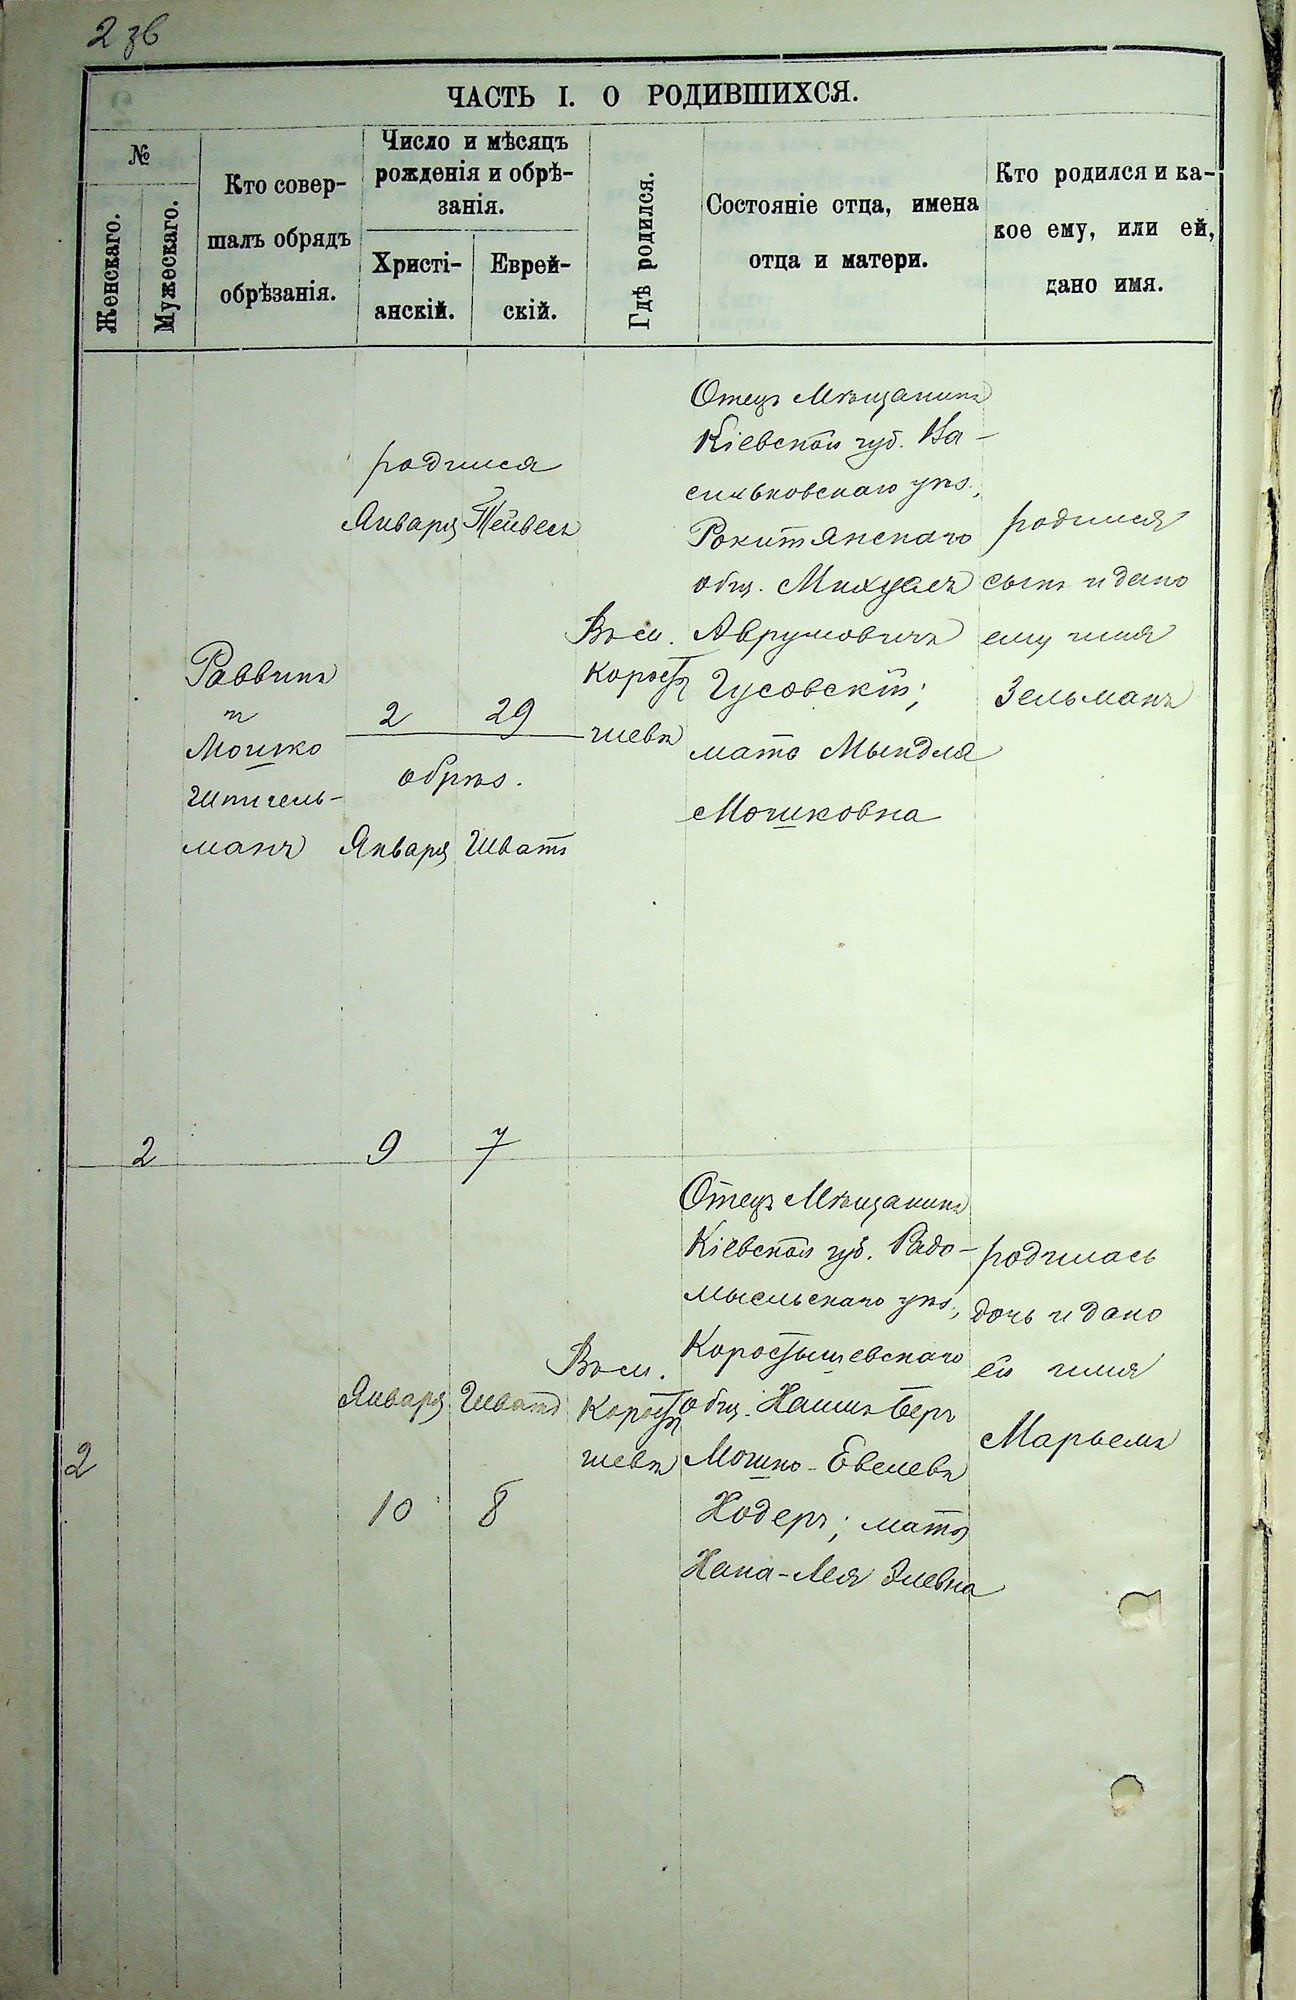 2 зв
ЧАСТЬ I. О РОДИВШИХСЯ.
№
Женскаго.
Мужескаго.
Кто совер-
шалъ обрядъ
обрѣзанія.
Число и мѣсяцъ
рожденія и обрѣ-
занія.
Христі-
анскій.
Еврей-
скій.
Гдѣ родился.
Состояніе отца, имена
отца и матери.
Кто родился и ка-
кое ему, или ей,
дано имя.
2
Раввинъ
и
Мошко
Шпигель-
манъ
родился
Января Тейвесъ
2 29
обрѣз.
Января Шватъ
9 7
Въ м.
Корост
шевѣ
Отецъ Мѣщанинъ
Кіевской губ. Ва-
сильковскаго уѣз.,
Рокитянскаго
общ. Михуель
Аврумовичъ
Гусовскій;
мать Мындля
Мошковна
родился
сынъ и дано
ему имя
Зельманъ
2
Января Шватъ
10 8
Въ м.
Корост
шевѣ
Отецъ Мѣщанинъ
Кіевской губ. Радо-
мысльскаго уѣз.,
Коростышевскаго
общ. Хаимъ Беръ
Мошко-Евелевъ
Ходеръ; мать
Хана-Лея Элевна
родилась
дочь и дано
ей имя
Марьемъ